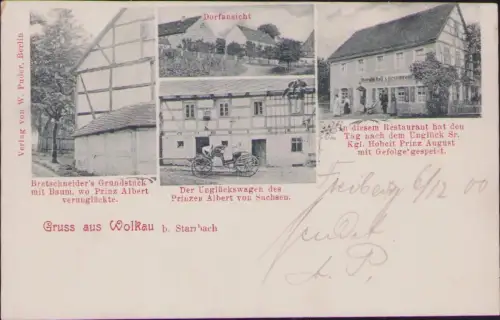 Verlag von W. Puder, Berlin
Dorfansicht
Bretschneider's Grundstück
mit Baum, wo Prinz Albert
verunglückte.
Der Unglückswagen des
Prinzen Albert von Sachsen.
In diesem Restaurant hat den
Tag nach dem Unglück Sr.
Kgl. Hoheit Prinz August
mit Gefolge gespeist.
Gruss aus Wolkau b. Starrbach
Freiberg 6/12 00
sendet
A. P.